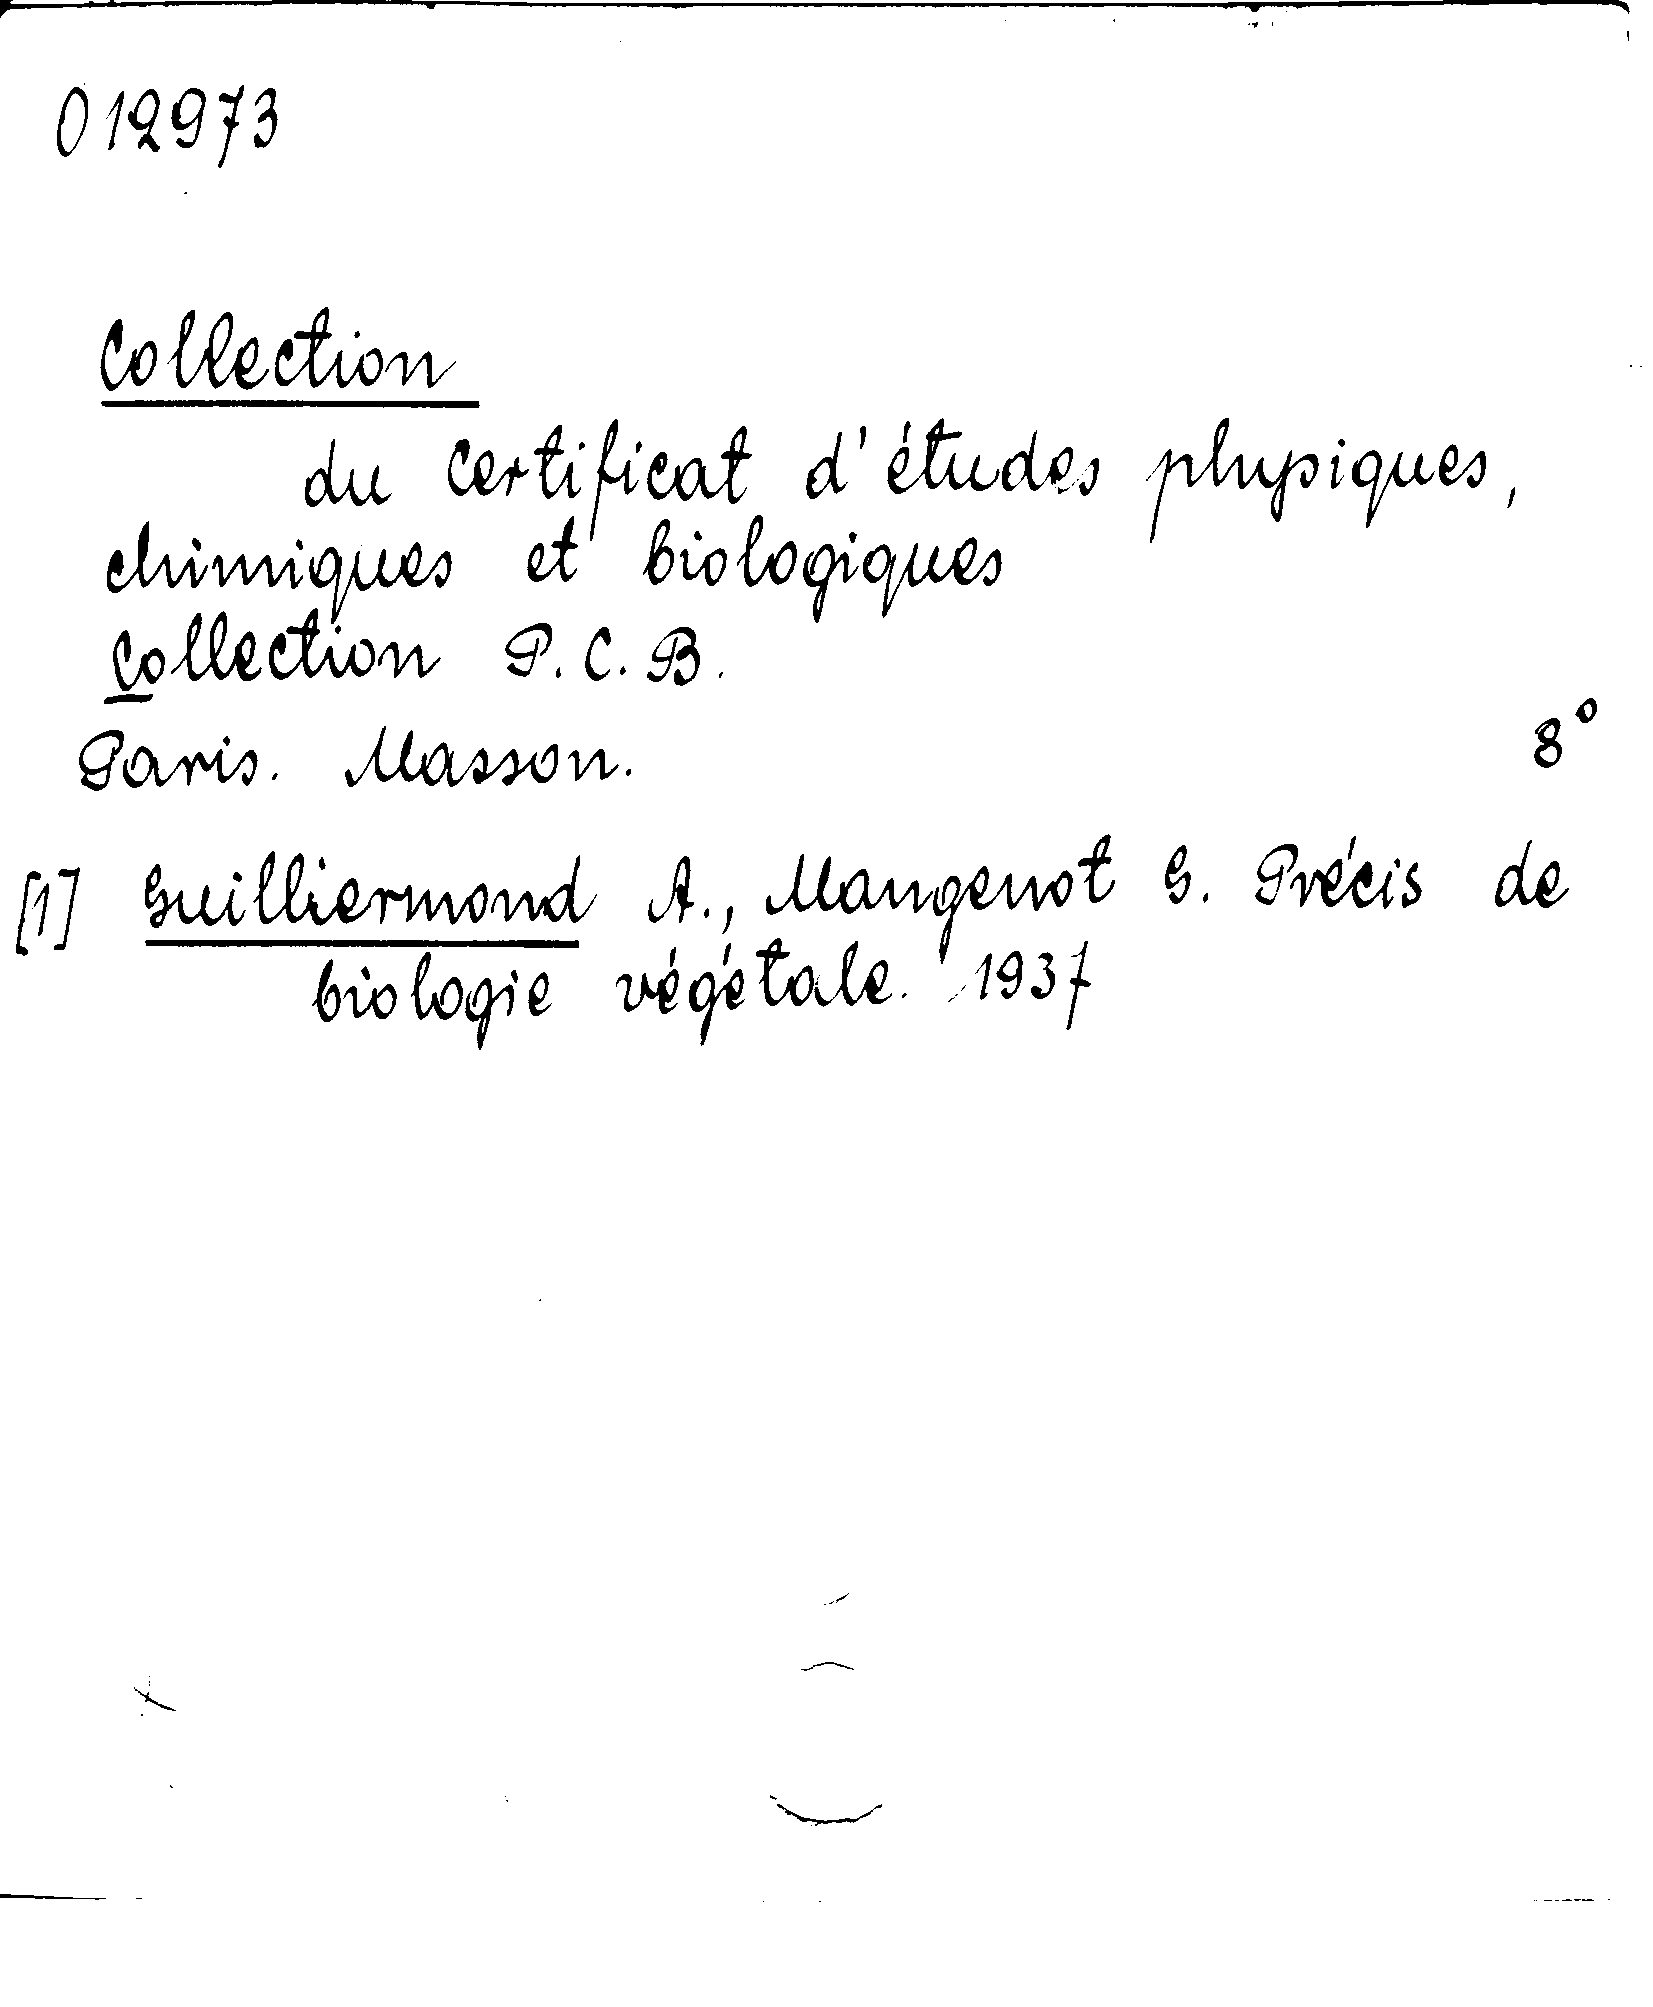 012973
Collection
du Certificat d'études physiques,
chimiques et biologiques
Collection P.C.B.
Paris. Masson. 8°
[1] Guilliermond A., Mangenot G. Précis de
biologie végétale. 1937